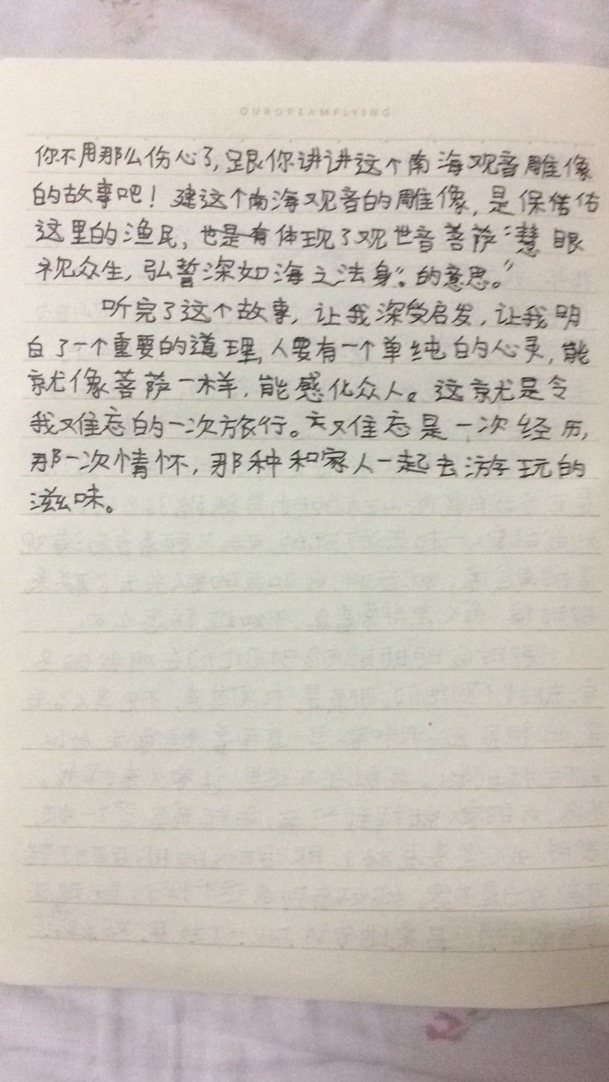 OURDREAMFLYING
你不用那么伤心了,跟你讲讲这个南海观音雕像
的故事吧！建这个南海观音的雕像,是保佑
这里的渔民,也是有体现了观世音菩萨"慧眼
视众生,弘誓深如海之法身"。的意思。"
听完了这个故事,让我深受启发,让我明
白了一个重要的道理,人要有一个单纯的心灵,能
就像菩萨一样,能感化众人。这就是令
我难忘的一次旅行。难忘是一次经历,
那一次情怀,那种和家人一起去游玩的
滋味。